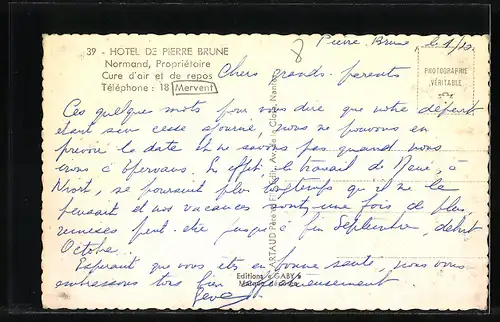 39 - HOTEL DE PIERRE BRUNE
Normand, Propriétaire
Cure d'air et de repos
Téléphone : 18 Mervent
Pierre Brune
PHOTOGRAPHIE
VÉRITABLE
Chers grands-parents
Ces quelques mots pour vous dire que notre départ
étant sans cesse ajourné, nous ne pouvons en
prévoir la date et ne savons pas quand nous
irons à Epervans. En effet, le travail de René, à
Niort, se poursuit plus longtemps qu'il ne le
pensait et nos vacances sont une fois de plus
remises peut-être jusqu'à fin Septembre, début
Octobre.
Espérant que vous êtes en bonne santé, nous vous
embrassons tous bien affectueusement
ARTAUD Père et Fils, Édit., Av. de la Close, Nantes
Editions "GABY"